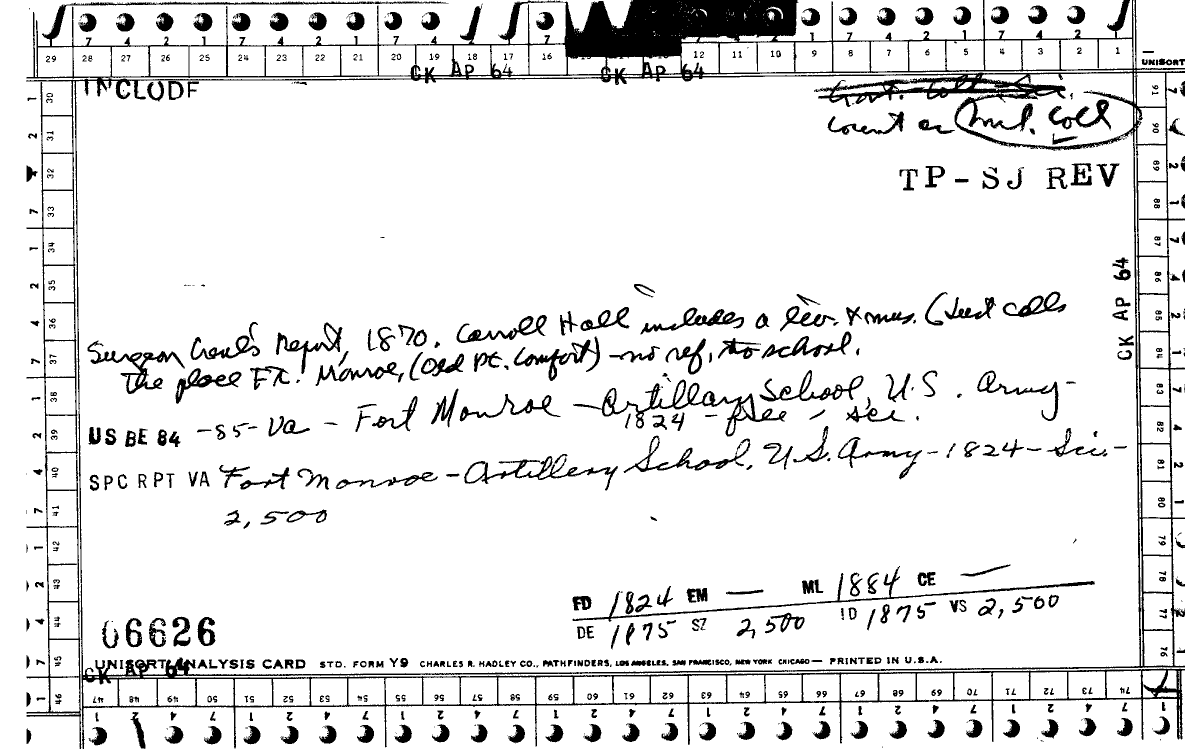 7 4 2 1 7 4 2 1 7 4 2 1 7 2 1 7 4 2 1 7 4 2
29 28 27 26 25 24 23 22 21 20 19 18 17 16 12 11 10 9 8 7 6 5 4 3 2 1
UNISORT
CK AP 64 CK AP 64
INCLUDE
Govt. Coll. Sci.
count as Mil. Coll
TP-SJ REV
CK AP 64
Surgeon Genl's Report, 1870. Carroll Hall includes a libr. & mus. (Just calls
the place Ft. Monroe, (Old Pt. Comfort) - no ref. to school.
US BE 84 -85- Va - Fort Monroe - Artillary School, U.S. Army -
1824 - free - sci.
SPC RPT VA Fort Monroe - Artillery School, U.S. Army - 1824 - Sci. -
2,500
FD 1824 EM — ML 1884 CE —
DE 1875 SZ 2,500 ID 1875 VS 2,500
06626
UNISORT ANALYSIS CARD STD. FORM Y9 CHARLES R. HADLEY CO., PATHFINDERS, LOS ANGELES, SAN FRANCISCO, NEW YORK CHICAGO — PRINTED IN U.S.A.
CK AP 64
47 48 49 50 51 52 53 54 55 56 57 58 59 60 61 62 63 64 65 66 67 68 69 70 71 72 73 74